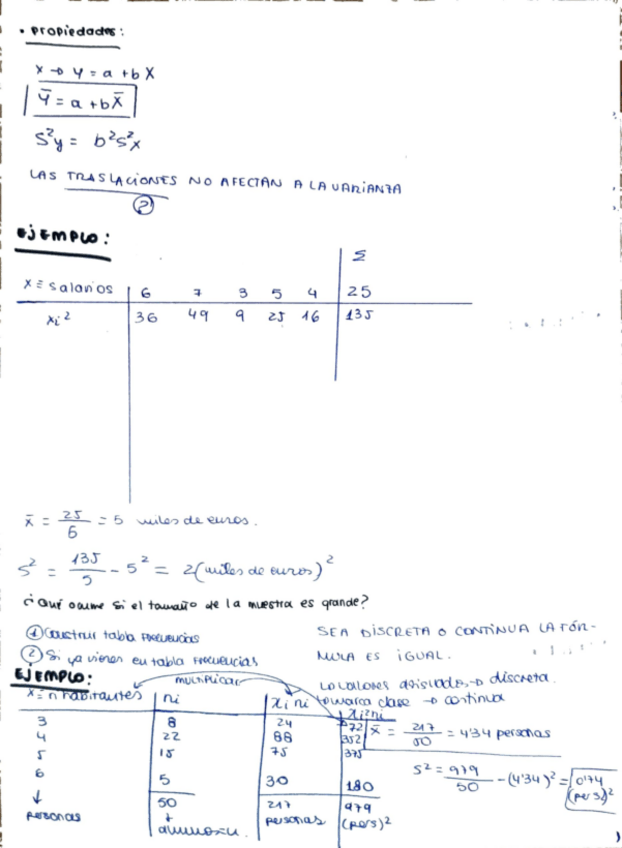 • Propiedades:
X → Y = a + b X
Ȳ = a + b X̄
S²y = b² S²x
LAS TRASLACIONES NO AFECTAN A LA VARIANZA
②
EJEMPLO:
Σ
X ≡ salarios 6 7 3 5 4 25
xi² 36 49 9 25 16 135
x̄ = 25/5 = 5 miles de euros.
S² = 135/5 - 5² = 2 (miles de euros)²
¿Qué ocurre si el tamaño de la muestra es grande?
① Construir tabla FRECUENCIAS
② Si ya vienen en tabla FRECUENCIAS
SEA DISCRETA O CONTINUA LA FÓR-
MULA ES IGUAL.
↳ valores aislados → discreta.
↳ marca clase → continua
EJEMPLO:
MULTIPLICAR
X = n habitantes ni xi ni xi² ni
3 8 24 72
4 22 88 352
5 15 75 375
6 5 30 180
↓ 50 217 979
personas personas (pers)²
x̄ = 217/50 = 4'34 personas
S² = 979/50 - (4'34)² = 0'74 (pers)²